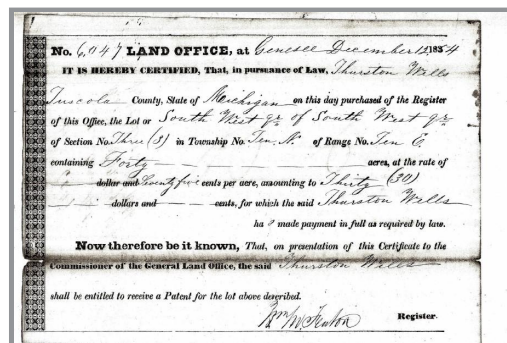 No. 6,047 LAND OFFICE, at Genesee December 12 1854
IT IS HEREBY CERTIFIED, That, in pursuance of Law, Thurston Wells
Tuscola County, State of Michigan on this day purchased of the Register
of this Office, the Lot or South West qr of South West qr
of Section No. Three (3) in Township No. Ten N. of Range No. Ten E
containing Forty acres, at the rate of
dollar and Seventy five cents per acre, amounting to Thirty (30)
dollars and cents, for which the said Thurston Wells
ha s made payment in full as required by law.
Now therefore be it known, That, on presentation of this Certificate to the
Commissioner of the General Land Office, the said Thurston Wells
shall be entitled to receive a Patent for the lot above described.
Wm M Fenton Register.